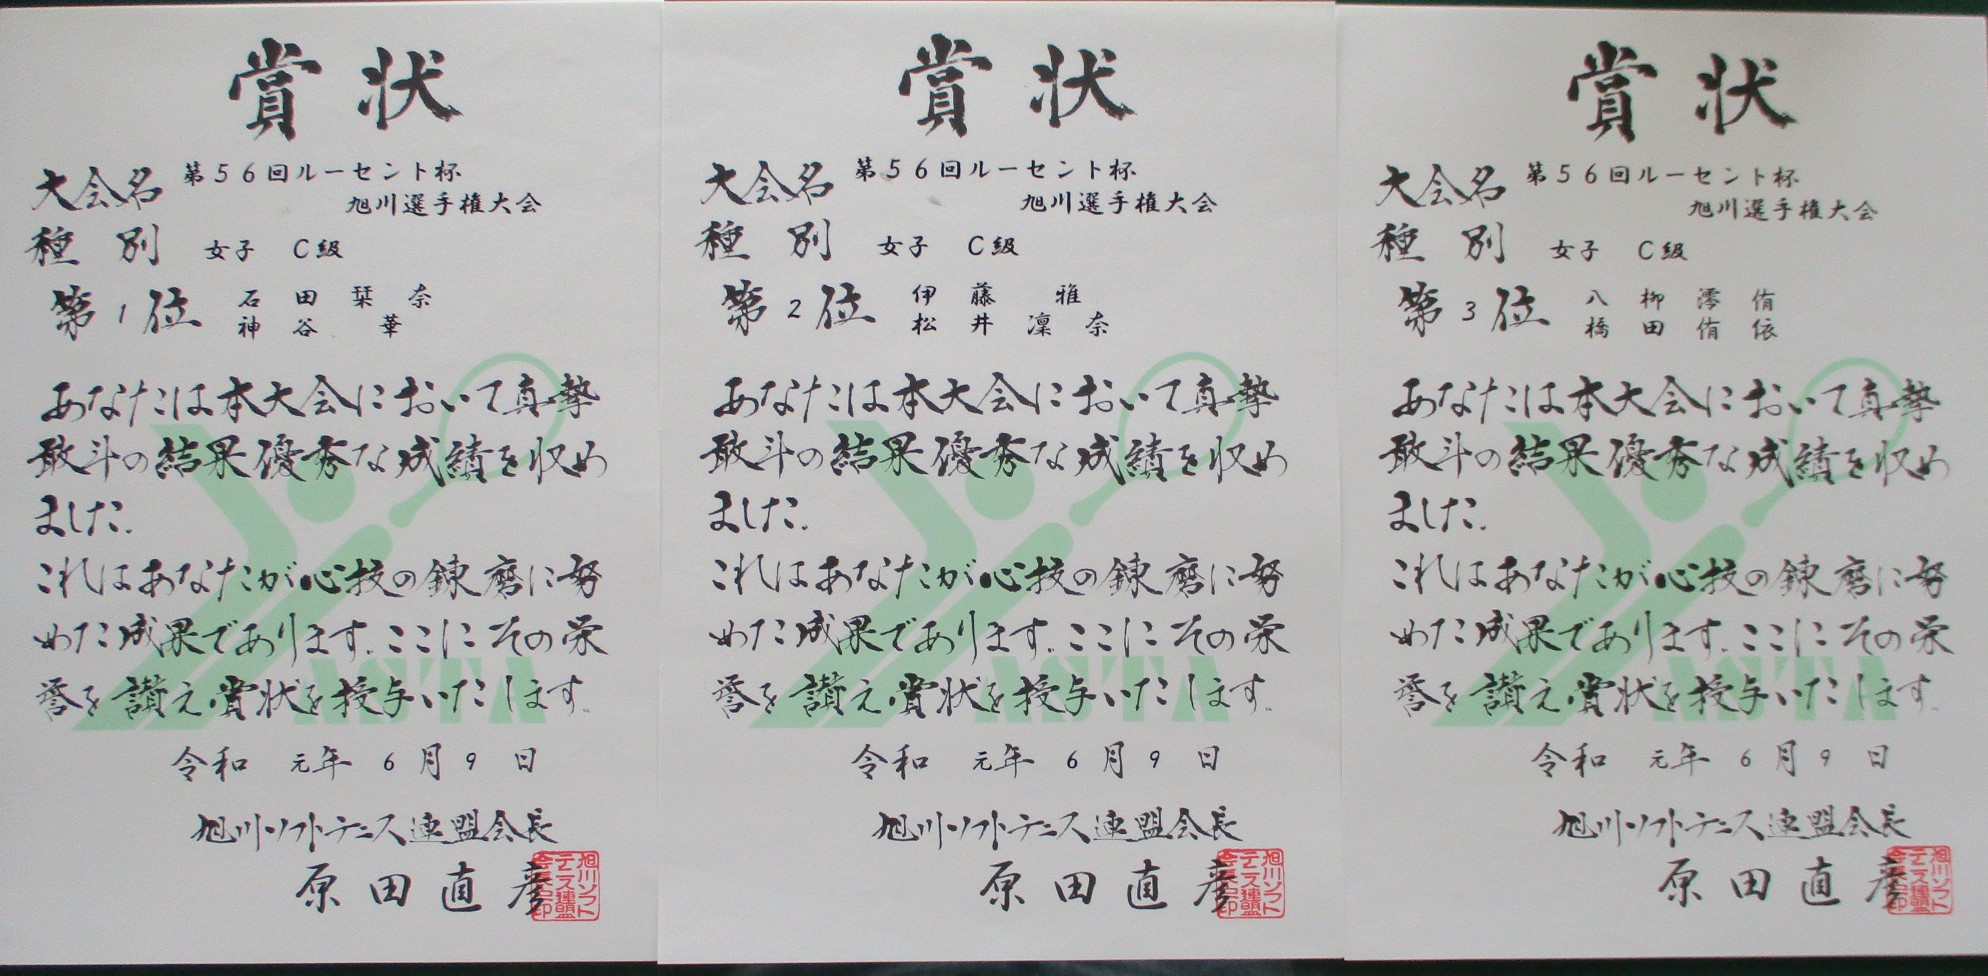 賞状
大会名 第56回ルーセント杯
旭川選手権大会
種別 女子 C級
第1位 石田栞奈
神谷 華
あなたは本大会において真摯
敢斗の結果優秀な成績を収め
ました.
これはあなたが心技の錬磨に努
めた成果であります.ここにその栄
誉を讃え賞状を授与いたします.
令和 元年 6月9日
旭川ソフトテニス連盟会長
原田直彦
旭川ソフト
テニス連盟
会長之印
ASTA
賞状
大会名 第56回ルーセント杯
旭川選手権大会
種別 女子 C級
第2位 伊藤 雅
松井凜奈
あなたは本大会において真摯
敢斗の結果優秀な成績を収め
ました.
これはあなたが心技の錬磨に努
めた成果であります.ここにその栄
誉を讃え賞状を授与いたします.
令和 元年 6月9日
旭川ソフトテニス連盟会長
原田直彦
旭川ソフト
テニス連盟
会長之印
ASTA
賞状
大会名 第56回ルーセント杯
旭川選手権大会
種別 女子 C級
第3位 八柳澪侑
橋田侑依
あなたは本大会において真摯
敢斗の結果優秀な成績を収め
ました.
これはあなたが心技の錬磨に努
めた成果であります.ここにその栄
誉を讃え賞状を授与いたします.
令和 元年 6月9日
旭川ソフトテニス連盟会長
原田直彦
旭川ソフト
テニス連盟
会長之印
ASTA